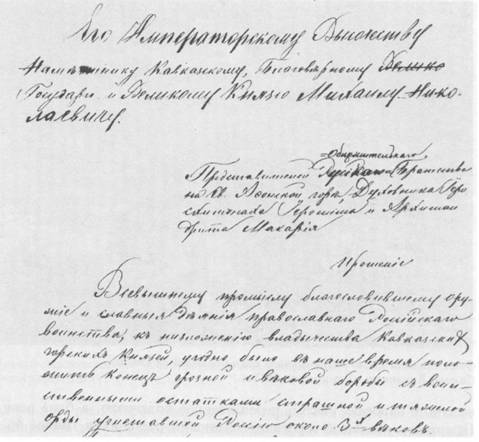 Его Императорскому Высочеству
Намѣстнику Кавказскому, Благовѣрному Велико
Государю и Великому Князю Михаилу Нико-
лаевичу.
Общежительнаго
Представителей Русскаго Братства
на Св. Аѳонской горѣ, Духовника Іеро
схимонаха Іеронима и Архиман
дрита Макарія
Прошеніе
Всевышнему промыслу благословившему ору
жіе и славныя дѣянія православнаго Россійскаго
воинства, къ низложенію владычества Кавказскихъ
горскихъ Князей, угодно было въ наше время поло
жить конецъ грозной и вѣковой борьбы съ воин
ственными остатками страшной и тяжелой
орды угнетавшей Россію около 3х вѣковъ.